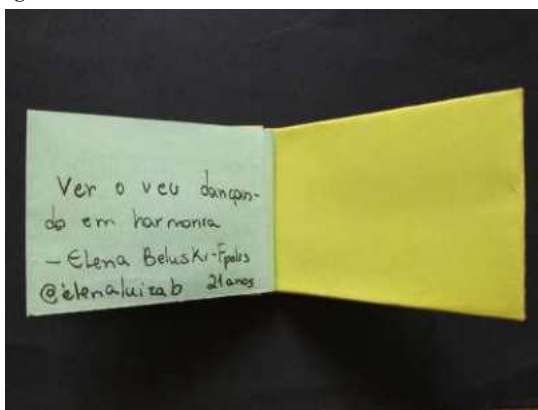 Ver o veu dançan-
do em harmonia
- Elena Beluski - Fpolis
@elenaluizab 21 anos